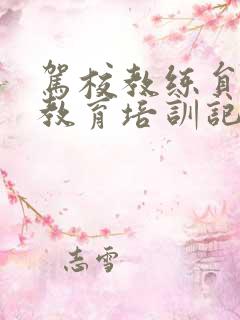 駕校教练員
教育培訓記
志雪